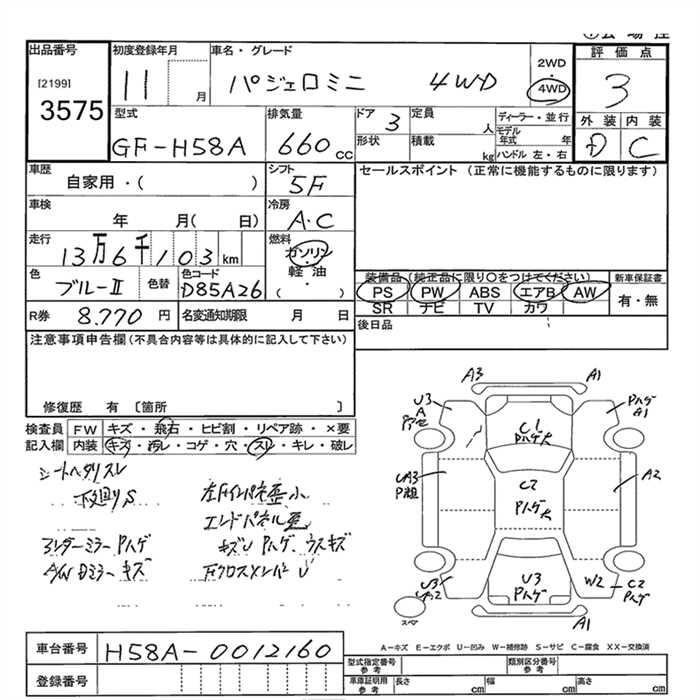 出品番号
[2199]
3575
初度登録年月
11 月
車名・グレード
パジェロミニ 4WD
2WD
・
4WD
評価点
3
型式
GF-H58A
排気量
660 cc
ドア 3
形状
定員 人
積載 kg
ディーラー・並行
モデル年式 年
ハンドル 左・右
外装 内装
D C
車歴
自家用・( )
シフト
5F
セールスポイント (正常に機能するものに限ります)
車検
年 月( 日)
冷房
A.C
走行
13万6千103 km
燃料
ガソリン
・
軽油
( )
色
ブルーII
色替
色コード
D85A26
装備品 (純正品に限り○をつけてください)
PS PW ABS エアB AW
SR ナビ TV カワ
新車保証書
有・無
R券 8,770 円
名変通知期限 月 日
後日品
注意事項申告欄(不具合内容等は具体的に記入して下さい)
修復歴 有 〔箇所 〕
検査員
記入欄
FW キズ・飛石・ヒビ割・リペア跡・×要
内装 キズ・汚レ・コゲ・穴・スレ・キレ・破レ
シートヘタリスレ
下廻りS
左Fインパネ歪小
エンドパネル歪
アンダーミラーPハゲ
キズU Pハゲ、ウスキズ
A/W Dミラーキズ
FクロスメンバーU
A3 A1
U3
A
Pハゲ
A1
C1
Pハゲ大
UA3
P粗
C2
Pハゲ大
A2
U3
U3
Pハゲ
W2
C2
Pハゲ
スペア
A1
A-キズ E-エクボ U-凹み W-補修跡 S-サビ C-腐食 XX-交換済
車台番号 H58A-0012160
登録番号
型式指定番号
参考
類別区分番号
参考
車庫証明用
参考
長さ cm
幅 cm
高さ cm